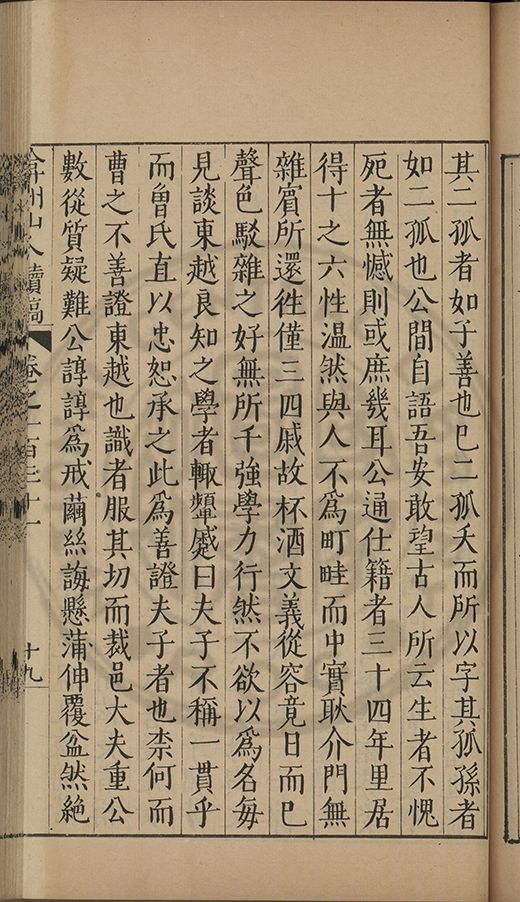 其二孤者如子善也已二孤夭而所以字其孤孫者
如二孤也公間自語吾安敢望古人所云生者不愧
死者無憾則或庶幾耳公通仕籍者三十四年里居
得十之六性溫然與人不為町畦而中實耿介門無
雜賓所還徃僅三四戚故杯酒文義從容竟日而已
聲色駁雜之好無所干強學力行然不欲以為名每
見談東越良知之學者輒顰蹙曰夫子不稱一貫乎
而曾氏直以忠恕承之此為善證夫子者也柰何而
曹之不善證東越也識者服其切而裁邑大夫重公
數從質疑難公諄諄為戒繭絲誨懸蒲伸覆盆然絕
弇州山人續稿 卷之一百三十一 十九